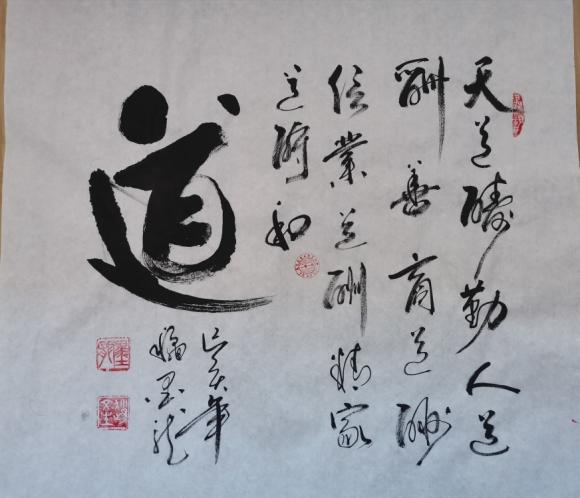 天道酬勤人道
酬善商道酬
信業道酬精家
道酬和
道
己亥年
墨龙